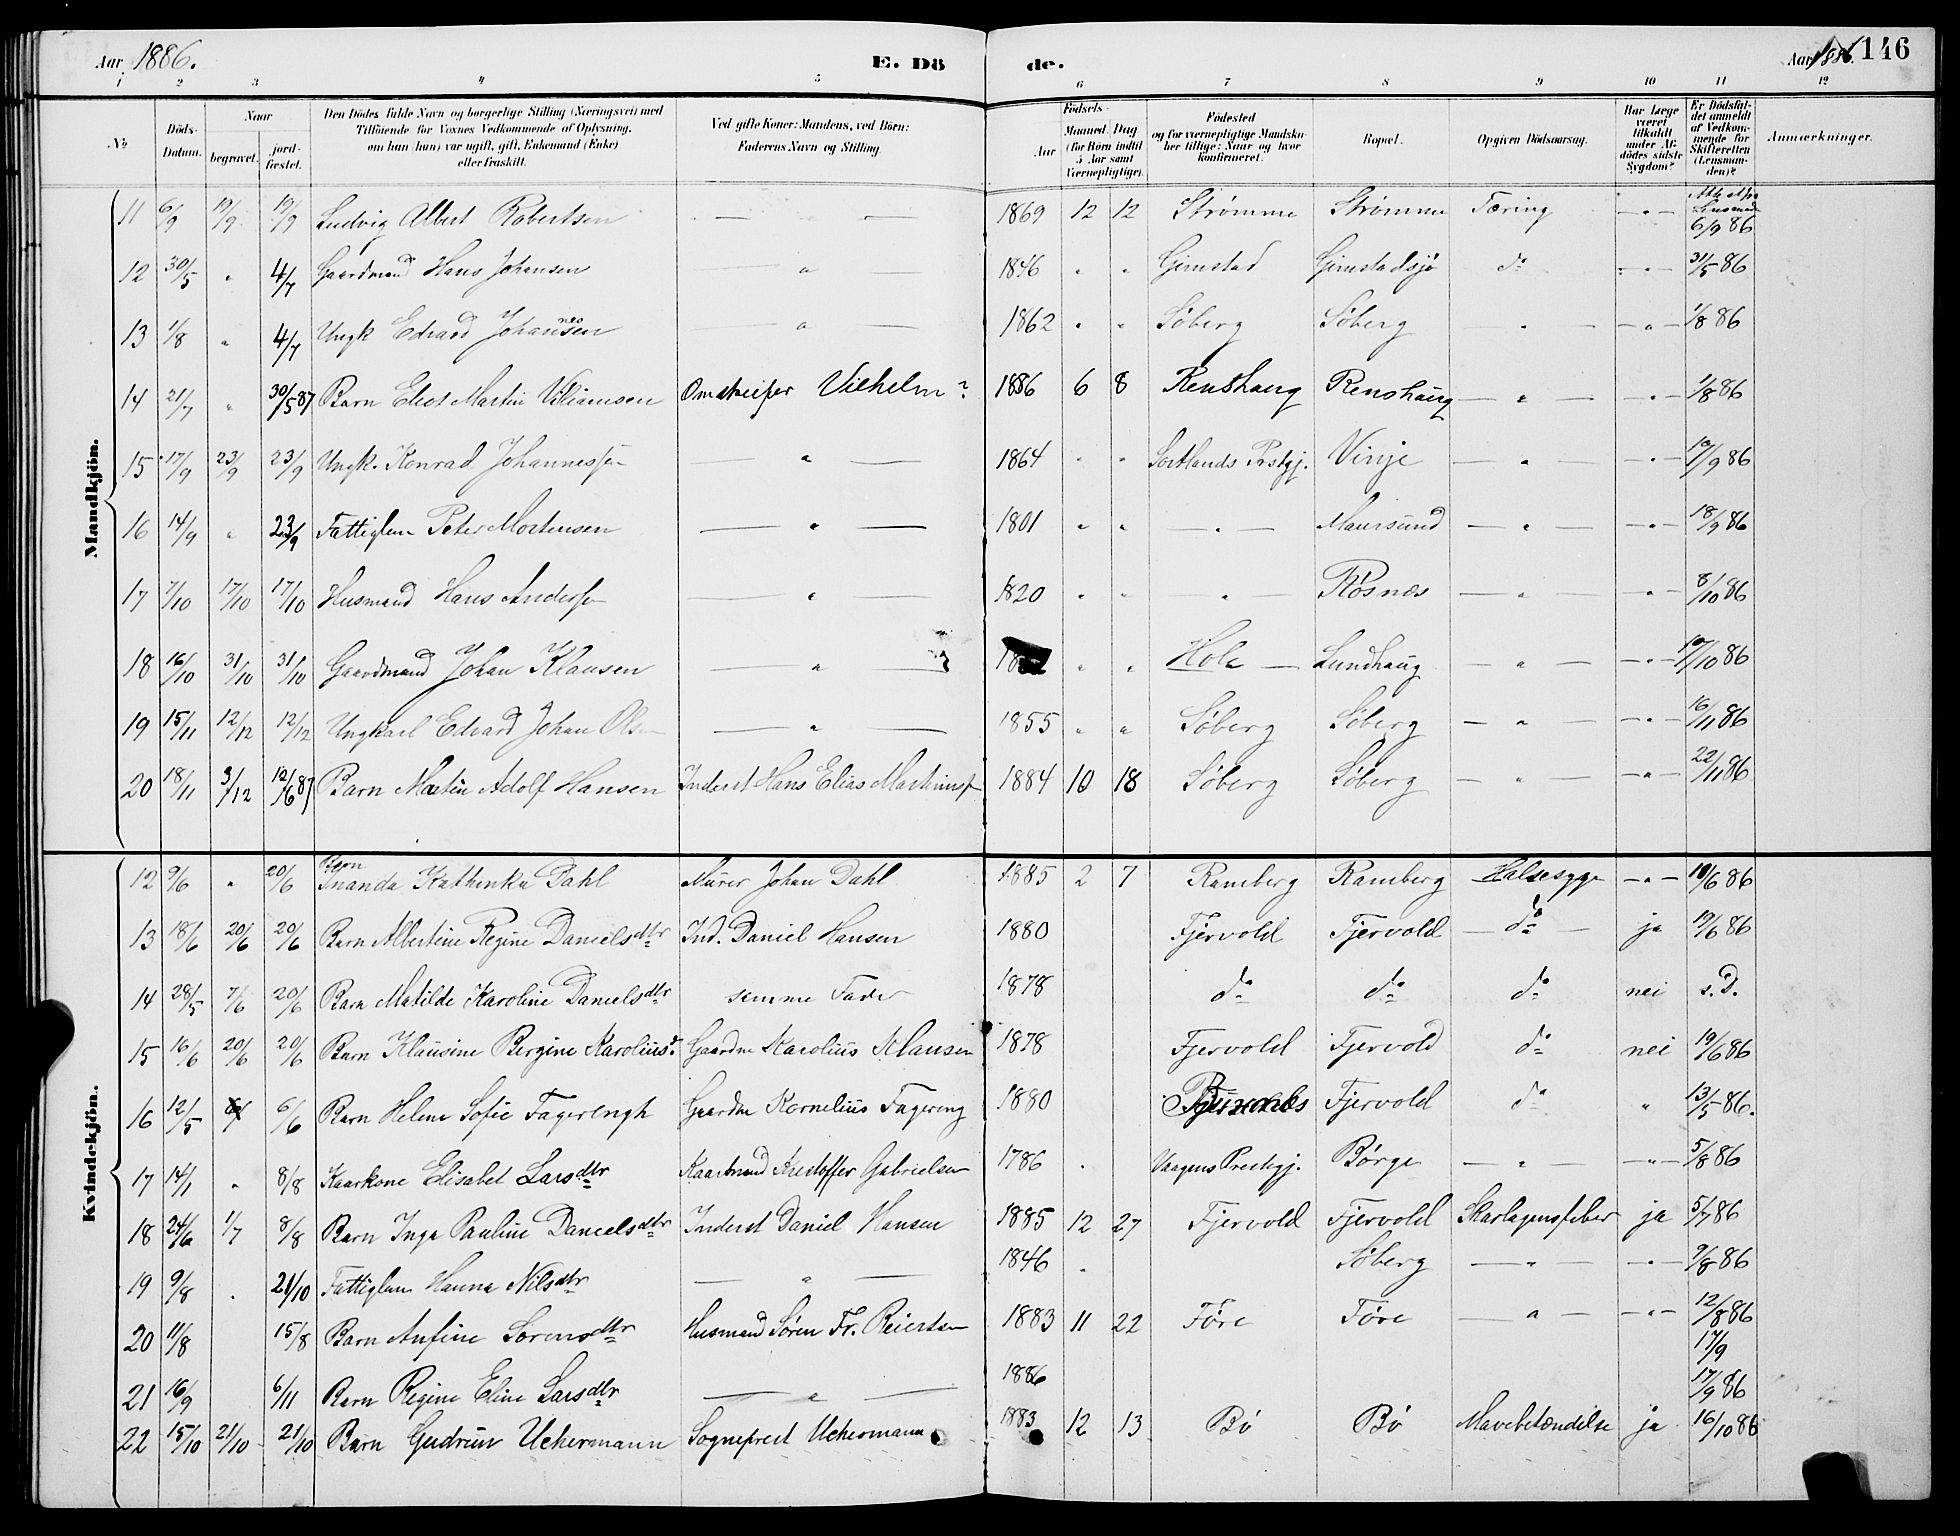 Aar 1886. E. Dö de. Aar 1886. 146
1 2 3 4 5 6 7 8 9 10 11 12
No
Döds-Datum.
Naar
begravet. jord-fæstet.
Den Dödes fulde Navn og borgerlige Stilling (Næringsvei) med
Tilföiende for Voxnes Vedkommende af Oplysning,
om han (hun) var ugift, gift, Enkemand (Enke)
eller fraskilt.
Ved gifte Koner: Mandens, ved Börn:
Faderens Navn og Stilling
Födsels-
Aar
Maaned Dag
(for Börn indtil
5 Aar samt
Værnepligtige).
Födested
og for værnepligtige Mandskaber tillige: Naar og hvor
konfirmeret.
Bopæl.
Opgiven Dödsaarsag.
Har Læge
været
tilkaldt
under Afdödes sidste
Sygdom?
Er Dödsfaldet anmeldt
af Vedkommende for
Skifteretten
(Lensmanden)?
Anmærkninger.
Mandkjön.
11 6/9 19/9 19/9 Ludvig Albert Robertsen — — 1869 12 12 Strømme Strømme Tæring - " - 6/9 86
12 30/5 " 4/7 Gaardmand Hans Johansen " 1846 " " Gimstad Gimstadsjø do - " - 31/5 86
13 1/8 " 4/7 Ungk Edvard Johansen — " — 1862 " " Søberg Søberg " — - " - 1/8 86
14 21/7 " 30/5 87 Barn Eliot Martin Viliamsen Omstreifer Vilhelm? 1886 6 8 Renshaug Renshaug — " — - " - 1/8 86
15 17/9 23/9 23/9 Ungk. Konrad Johannessen — " — 1864 " " Sortlands Prstgj. Vinje — " — - " - 19/9 86
16 14/9 " 23/9 Fattiglem Peter Mortensen — " — 1801 " " — " — Maursund — " — - " - 18/9 86
17 7/10 17/10 17/10 Husmand Hans Andersen — " — 1820 " " " Røsnes — " — - " - 8/10 86
18 16/10 31/10 31/10 Gaardmand Johan Klausen — " — 18 " " Hola — Lundhaug — " — - " - 19/10 86
19 15/11 12/12 12/12 Ungkarl Edvard Johan Olsen — " — 1855 " " Søberg Søberg — " — - " - 16/11 86
20 18/11 3/12 12/6 87 Barn Martin Adolf Hansen Inderst Hans Elias Martinsen 1884 10 18 Søberg Søberg — " — - " - 22/11 86
Kvindekjön.
12 9/6 " 20/6 Barn Inanda Kathinka Dahl Murer Johan Dahl 1885 2 7 Ramberg Ramberg Halsesyge - " - 10/6 86
13 18/6 20/6 20/6 Barn Albertine Regine Danielsdtr Ind. Daniel Hansen 1880 Fjervold Fjervold — do — ja 19/6 86
14 28/5 7/6 20/6 Barn Matilde Karoline Danielsdtr samme Fader 1878 do do do nei s. D.
15 16/6 20/6 20/6 Barn Klausine Bergine Karoliusd. Gaardm Karolius Klausen 1878 Fjervold Fjervold do nei 19/6 86
16 12/5 6/6 Barn Helene Sofie Fagerengh Gaardm Kornelius Fagereng 1880 Fjervold do " 13/5 86.
17 14/1 " 8/8 Kaarkone Elisabet Larsdtr Kaarmand Kristoffer Gabrielsen 1786 . Vaagens Prestgj. Børge — " — - " - 5/8 86
18 24/6 1/7 8/8 Barn Inga Pauline Danielsdtr Inderst Daniel Hansen 1885 12 27 Fjervold Fjervold Skarlagensfeber ja 5/7 86
19 9/8 . 21/10 Fattiglem Hanna Nilsdtr — " — 1846 . Søberg — " — - " - 9/8 86
20 11/8 15/8 Barn Anfine Sorensdtr Husmand Søren Fr. Reiertsen 1883 11 22 Føre Føre — " — - " - 12/8 86
17/9
21 16/9 6/11 Barn Regine Eline Larsdtr — " — 1886 17/9 86
22 15/10 21/10 21/10 Barn Gudrun Uchermann Sogneprest Uchermann 1883 12 13 Bø Bø Mavebetændelse ja 16/10 86